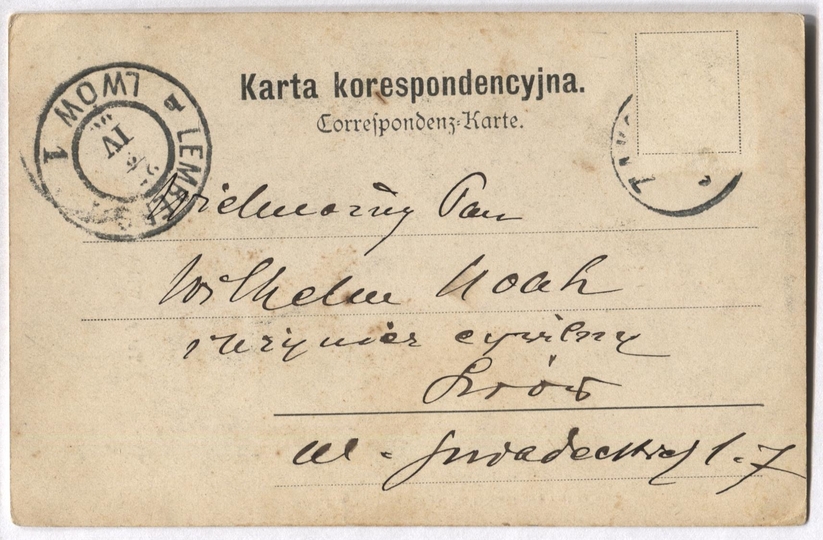 Karta korespondencyjna.
Correspondenz-Karte.
LWÓW 1
LEMBERG
IV
Wielmożny Pan
Wilhelm Noah
inżynier cywilny
Lwów
ul. Śniadeckich l. 7